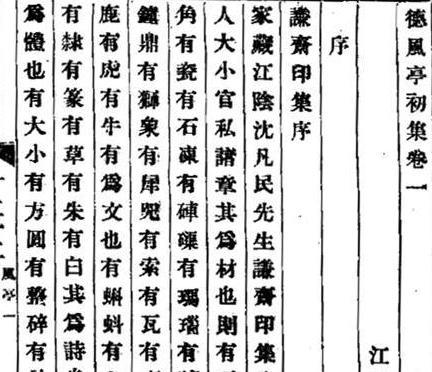 德風亭初集卷一
江
序
謙齋印集序
家藏江陰沈凡民先生謙齋印集
人大小官私諸章其爲材也則有
角有瓷有石凍有硨磲有瑪瑙有
鐘鼎有獅象有犀兕有索有瓦有
鹿有虎有牛有爲文也有蝌蚪有
有隸有篆有草有朱有白其爲詩
爲體也有大小有方圓有整碎有
風亭一